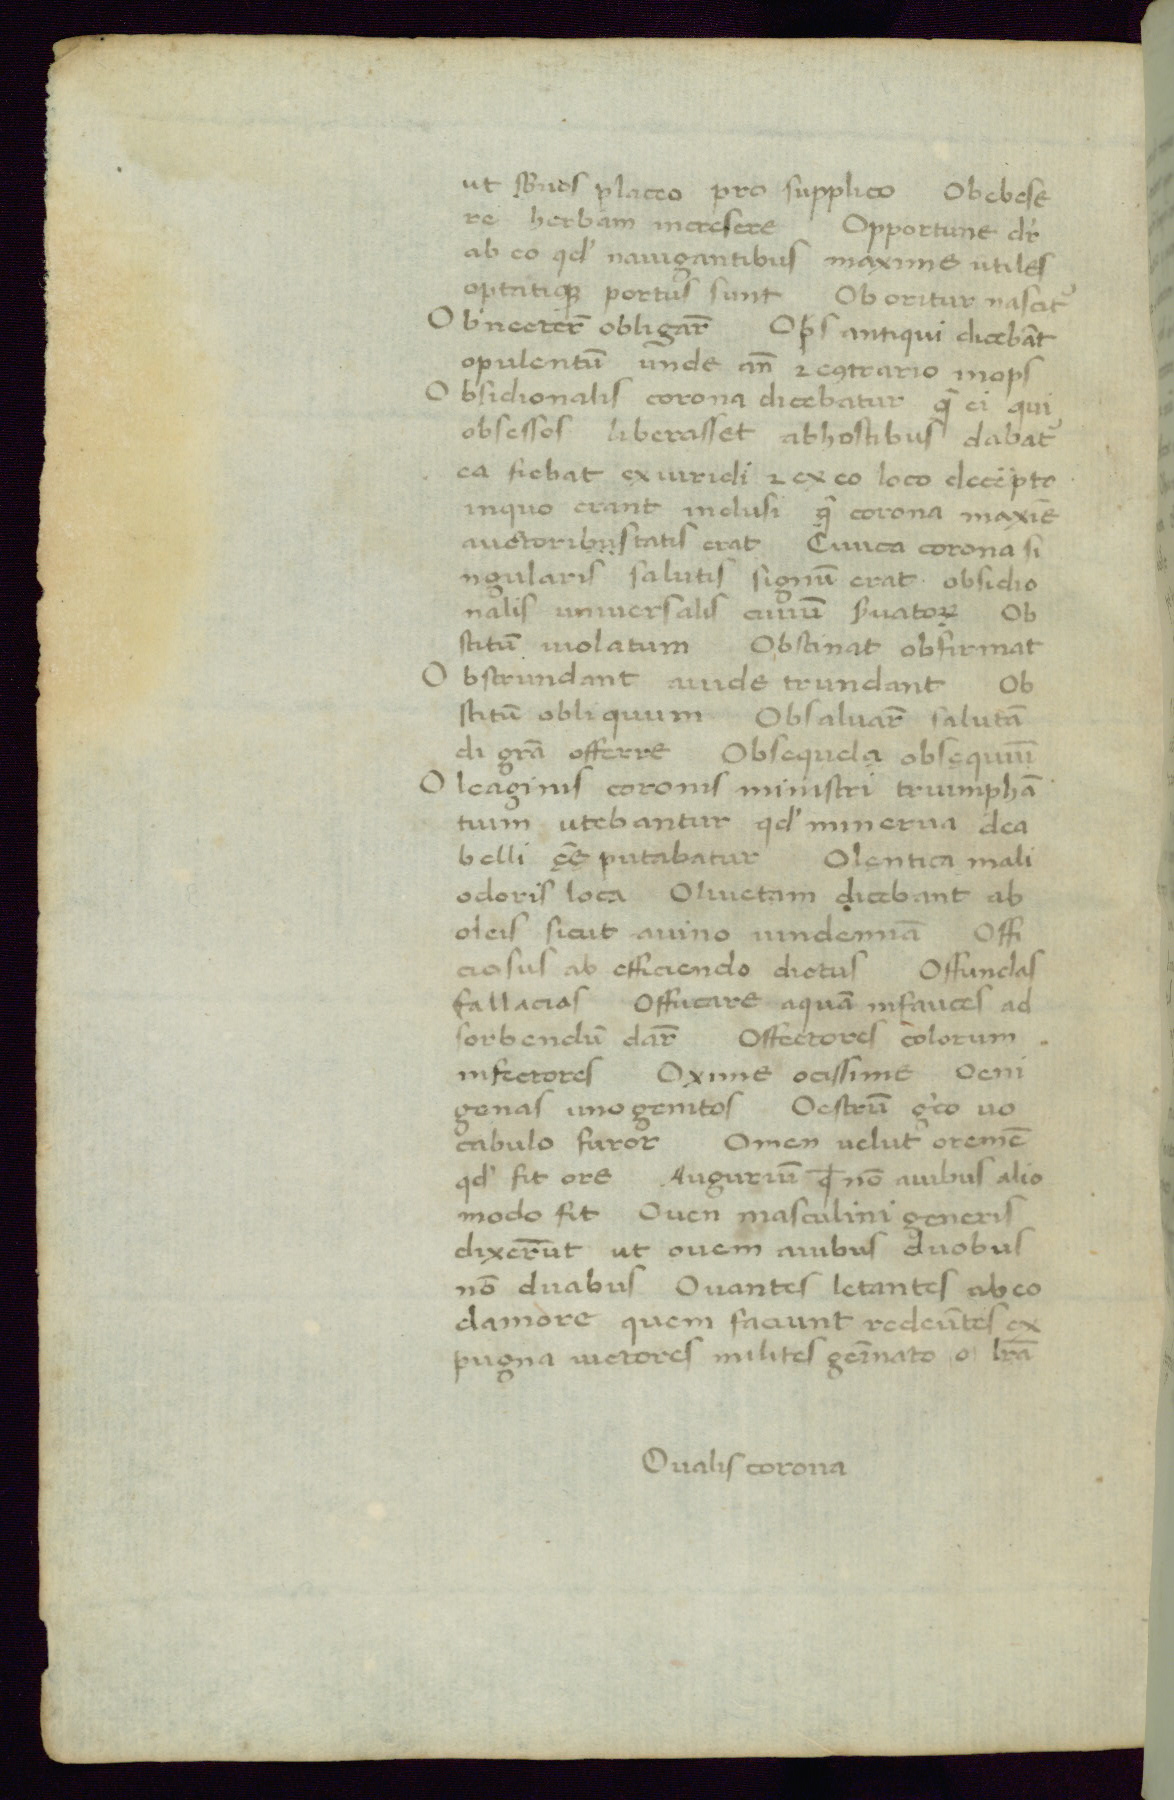 ut suos placeo pro supplico Obebese
re herbam increscere Opportune dr̄
ab eo qd' nauigantibus maxime utiles
optatiq; portus sunt Oboritur nascit᷑
Obnecter̄ obligar̄ Ops antiqui dicebāt
opulentū unde añ ⁊ e ꝯtrario inops
Obsidionalis corona dicebatur q̄ ei qui
obsessos liberasset abhostibus dabat᷑
ea fiebat exuiridi ⁊ ex eo loco decerpto
inquo erant inclusi q̄ corona maxīe
auctoribustatis erat Ciuica corona si
ngularis salutis signū erat obsidio
nalis uniuersalis ciuiū suatoꝝ Ob
stitū uiolatum Obstinat obfirmat
Obstrundant auide trundant Ob
stitū obliquum Obsaluar̄ salutā
di grā offerre Obsequela obsequiū
Oleaginis coronis ministri triumphā
tium utebantur qd' minerua dea
belli eē putabatur Olentica mali
odoris loca Oliuetam dicebant ab
oleis sicut auino uindemiā Offi
ciosus ab efficiendo dictus Offundas
fallacias Offucare aquā infauces ad
sorbendū dar̄ Offectores colorum
infectores Oxime ocissime Oeni
genas unogenitos Oestrū gͨco uo
cabulo furor Omen uelut oremē
qd' fit ore Auguriū ꝗ nō auibus alio
modo fit Ouen masculini generis
dixer̄ut ut ouem auibus duobus
nō duabus Ouantes letantes abeo
clamore quem faciunt redeūtes ex
pugna uictores milites gēinato o lrā
Oualis corona